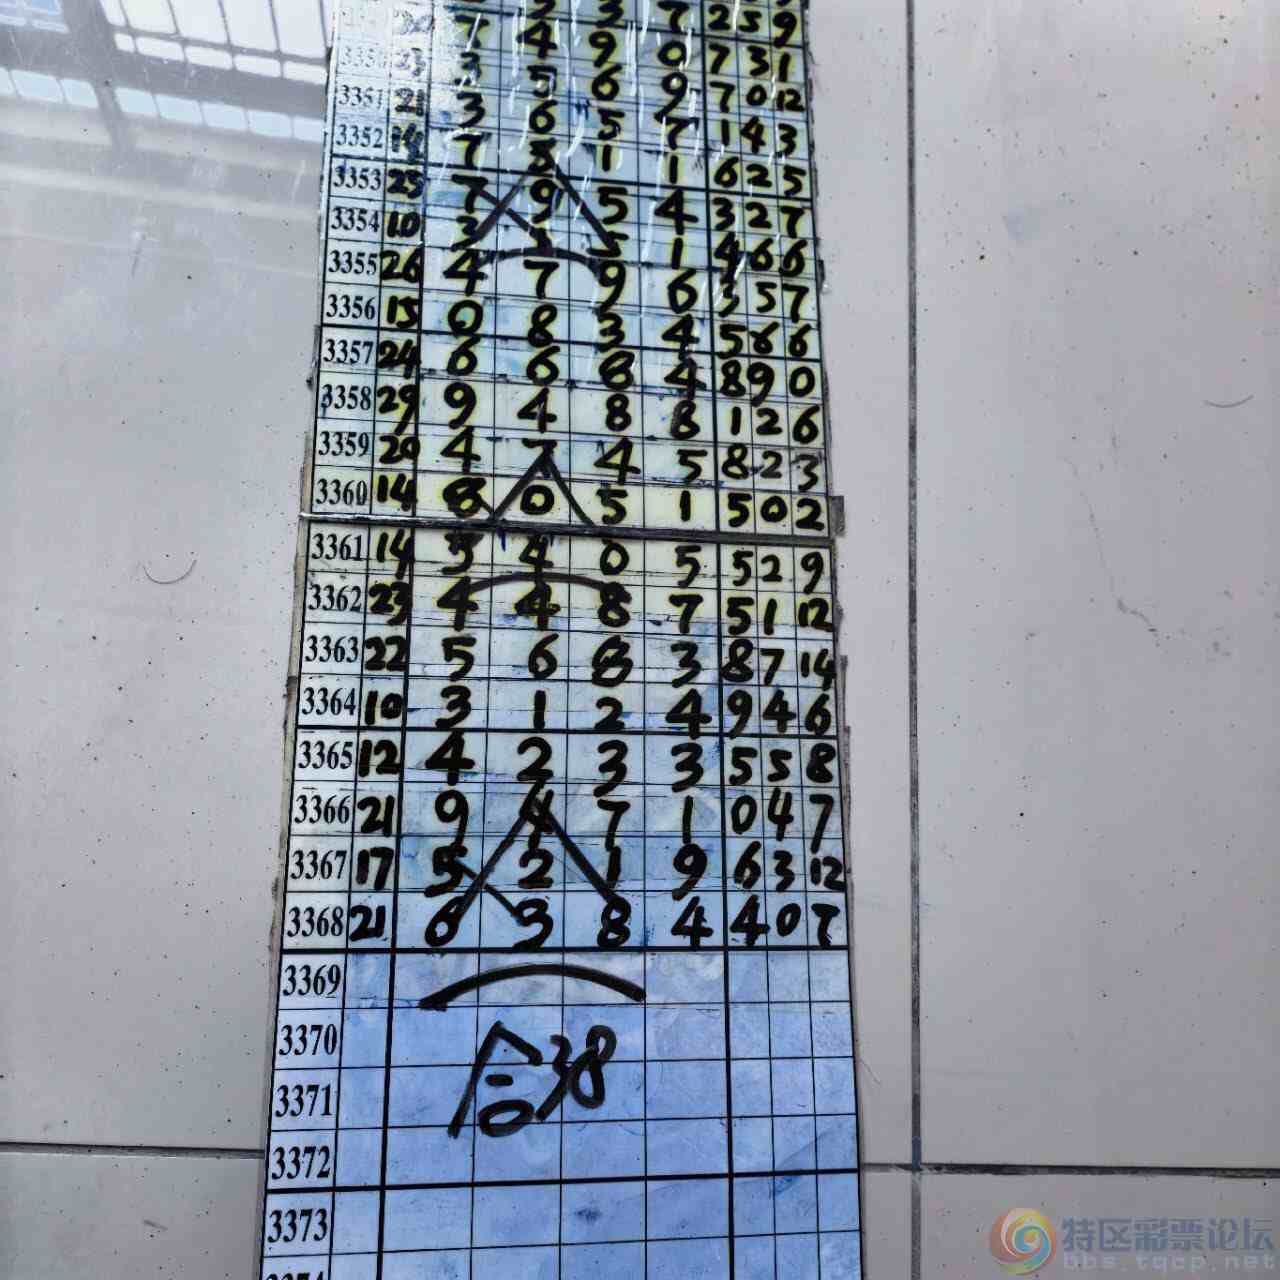 7 2 5 9
3350 23 7 4 9 0 7 3 1
3351 21 3 6 5 9 7 0 12
3352 7 1 7 1 4 3
3353 25 7 9 5 4 6 2 5
3354 10 1 3 2 7
3355 26 4 7 9 6 4 6 6
3356 15 0 8 3 4 3 5 7
3357 24 6 6 8 4 5 6 6
3358 29 9 4 8 8 8 9 0
3359 20 4 7 4 5 1 2 6
3360 14 8 0 5 1 8 2 3
5 0 2
3361 14 5 4 0 5 5 2 9
3362 23 4 4 8 7 5 1 12
3363 22 5 6 8 3 8 7 14
3364 10 3 1 2 4 9 4 6
3365 12 4 2 3 3 5 5 8
3366 21 9 4 7 1 0 4 7
3367 17 5 2 1 9 6 3 12
3368 21 6 3 8 4 4 0 7
3369
3370
合38
3371
3372
3373
特区彩票论坛
bbs.tqcp.net